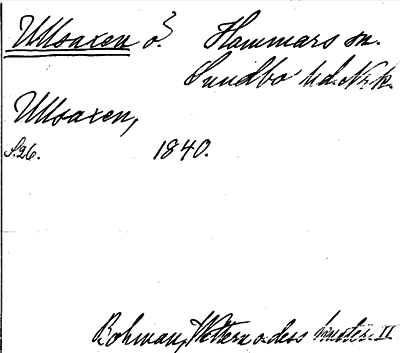 Ullsaxen ö. Hammars sn.
Sundbo hd. Nrk.
Ullsaxen,
S.26. 1840.
Bohman, Wettern o. dess kuster. II